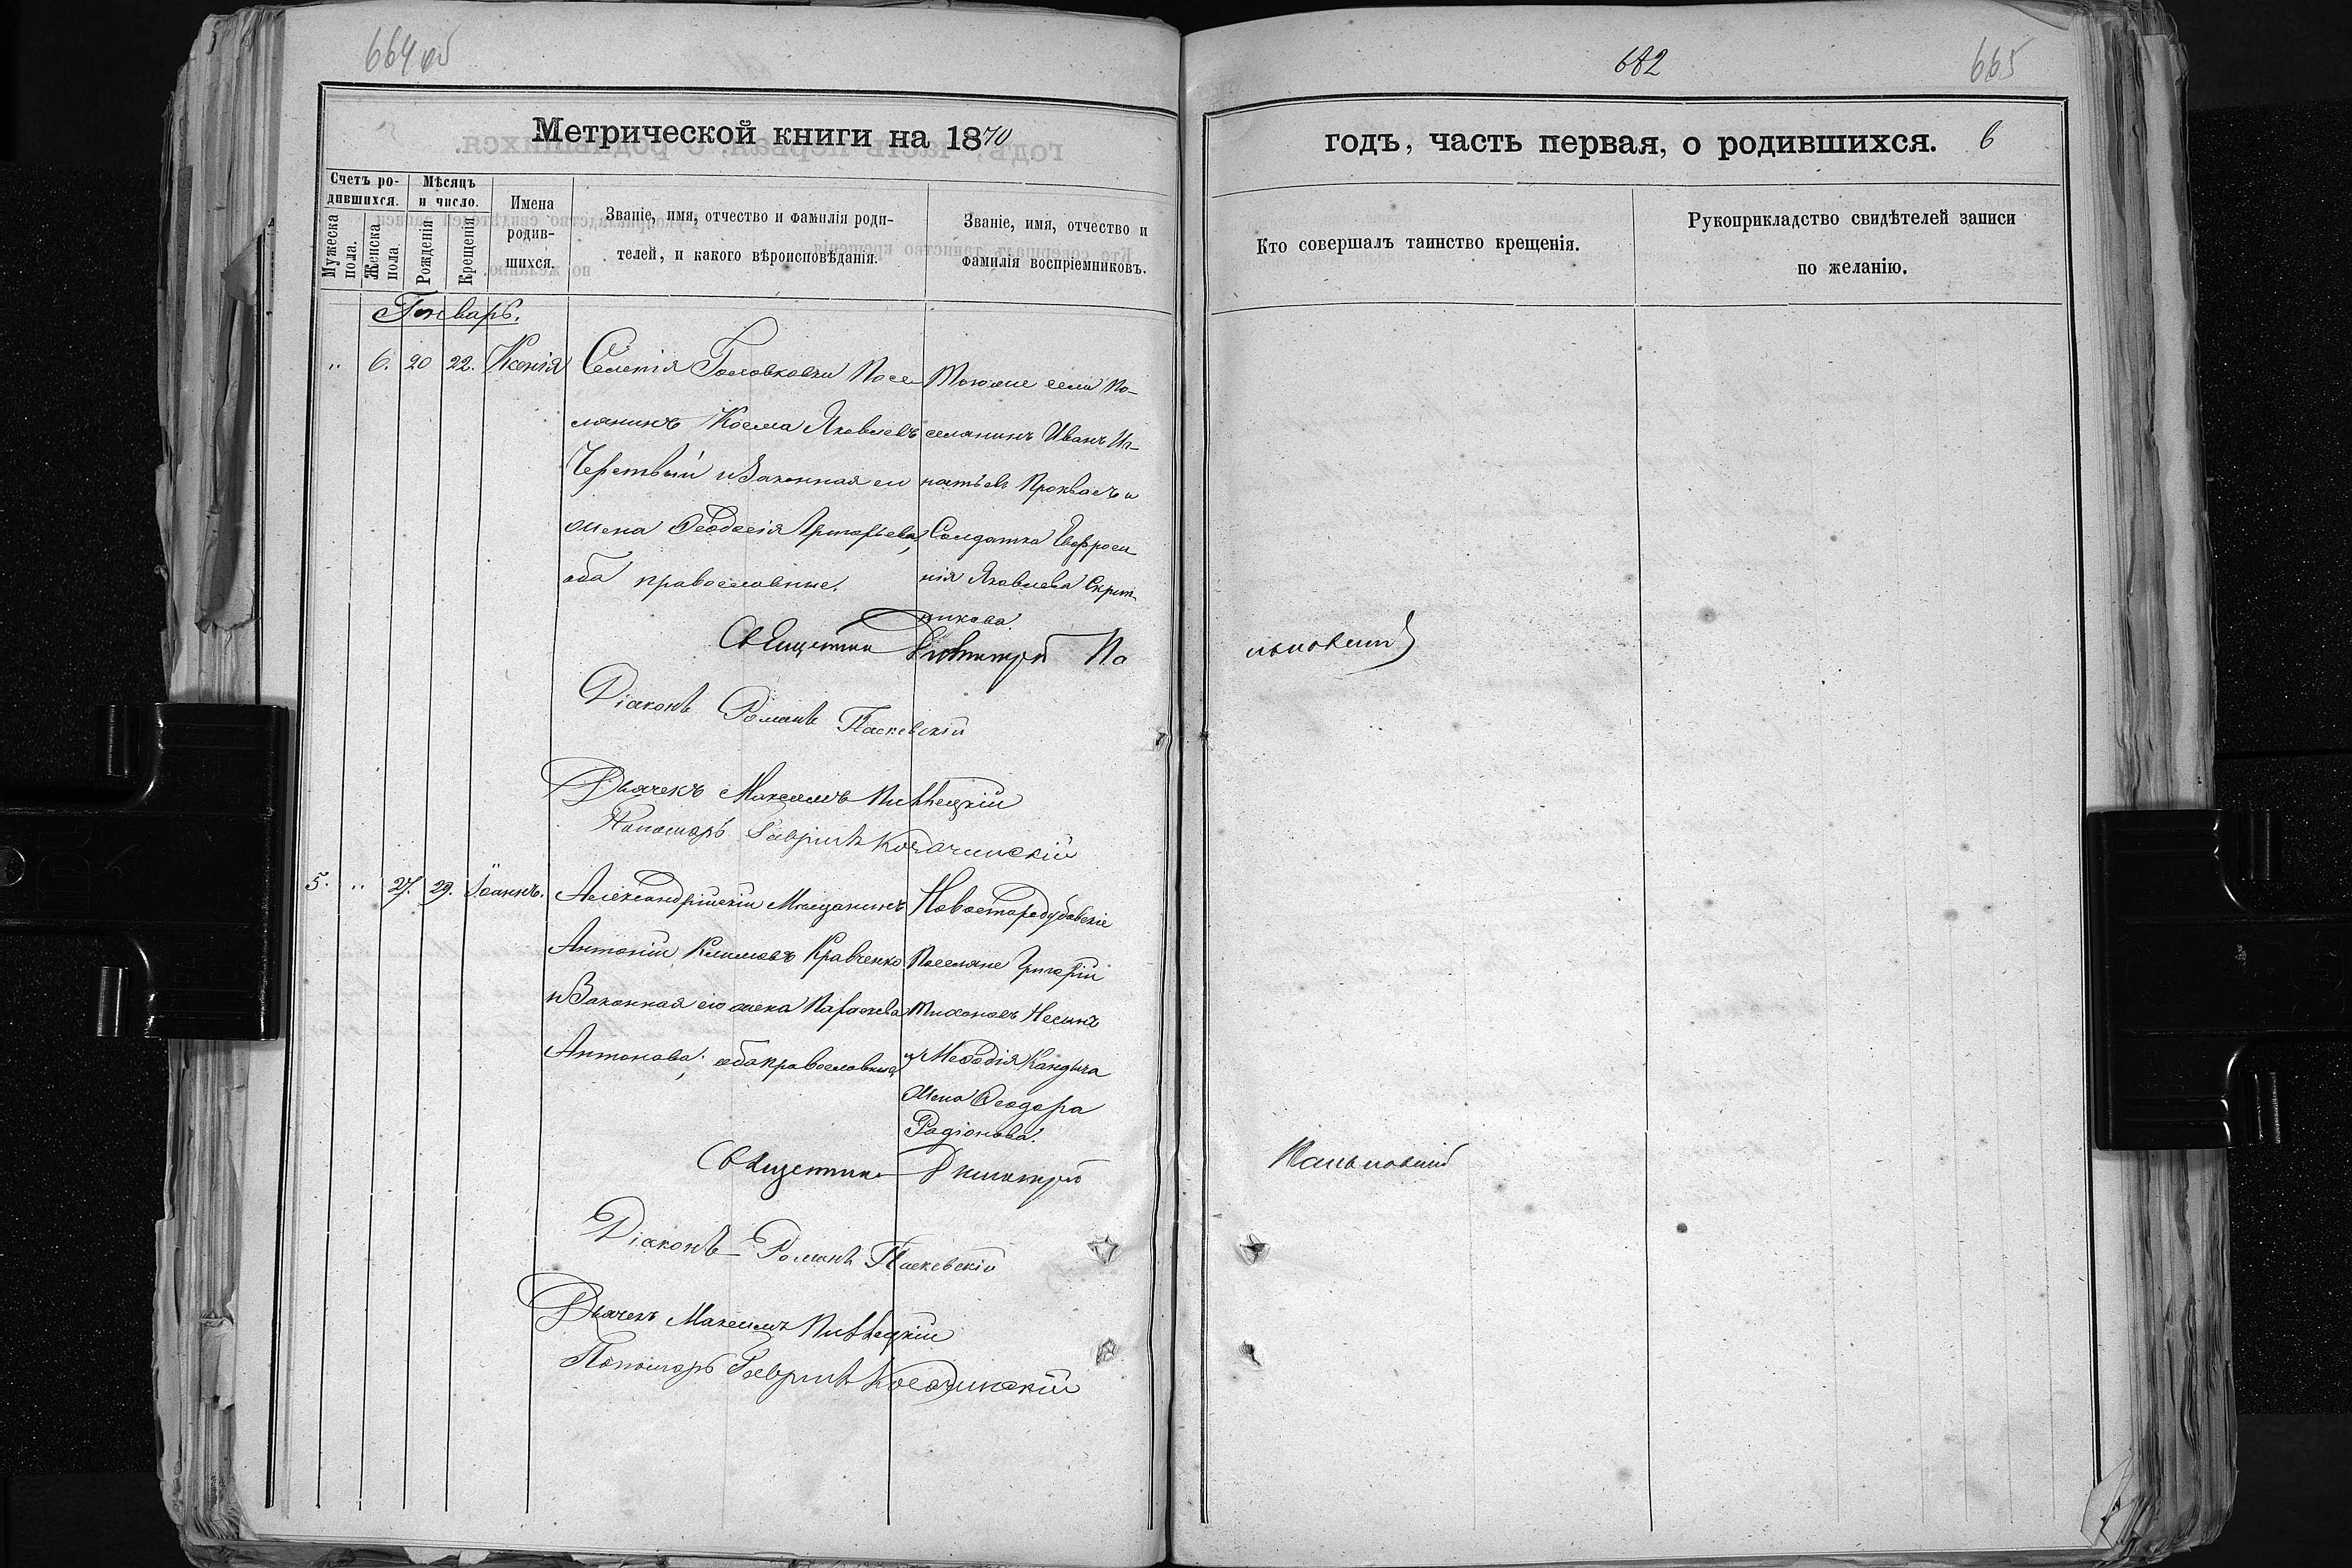 664 об
682
665
Метрической книги на 1870
годъ, часть первая, о родившихся. 6
Счетъ родившихся.
Мужеска пола.
Женска пола.
Мѣсяцъ и число.
Рожденія
Крещенія
Имена родив-
шихся.
Званіе, имя, отчество и фамилія роди-
телей, и какого вѣроисповѣданія.
Званіе, имя, отчество и
фамилія воспріемниковъ.
Кто совершалъ таинство крещенія.
Рукоприкладство свидѣтелей записи
по желанію.
Генварь.
" 6. 20 22. Ксенія
Головковки Посе-
лянинъ Косма Яковлевъ
Черствый и Законная его
жена Феодосія Григорьева,
оба православные.
Тогоже села По-
селянинъ Иванъ Иг-
натьевъ и
Солдатка Евфроси
нія Яковлева Скрип-
никова.
Священник Димитрій Па
льновскій
Діаконъ Романъ Паскевскій
Дьячекъ Максимъ
Пономарь Гавріилъ
5. " 27. 29. Іоаннъ.
Александрійскій Мѣщанинъ
Антоній Климовъ Кравченко
и Законная его жена Параскева
Антонова; оба православные
Новостародубовскіе
Поселяне Григорій
Тихоновъ Несинъ
и Мефодія Кандыча
жена Феодора
Радіонова.
Священник Димитрій
Пальновскій
Діаконъ Романъ Паскевскій
Дьячекъ Максимъ
Пономарь Гавріилъ